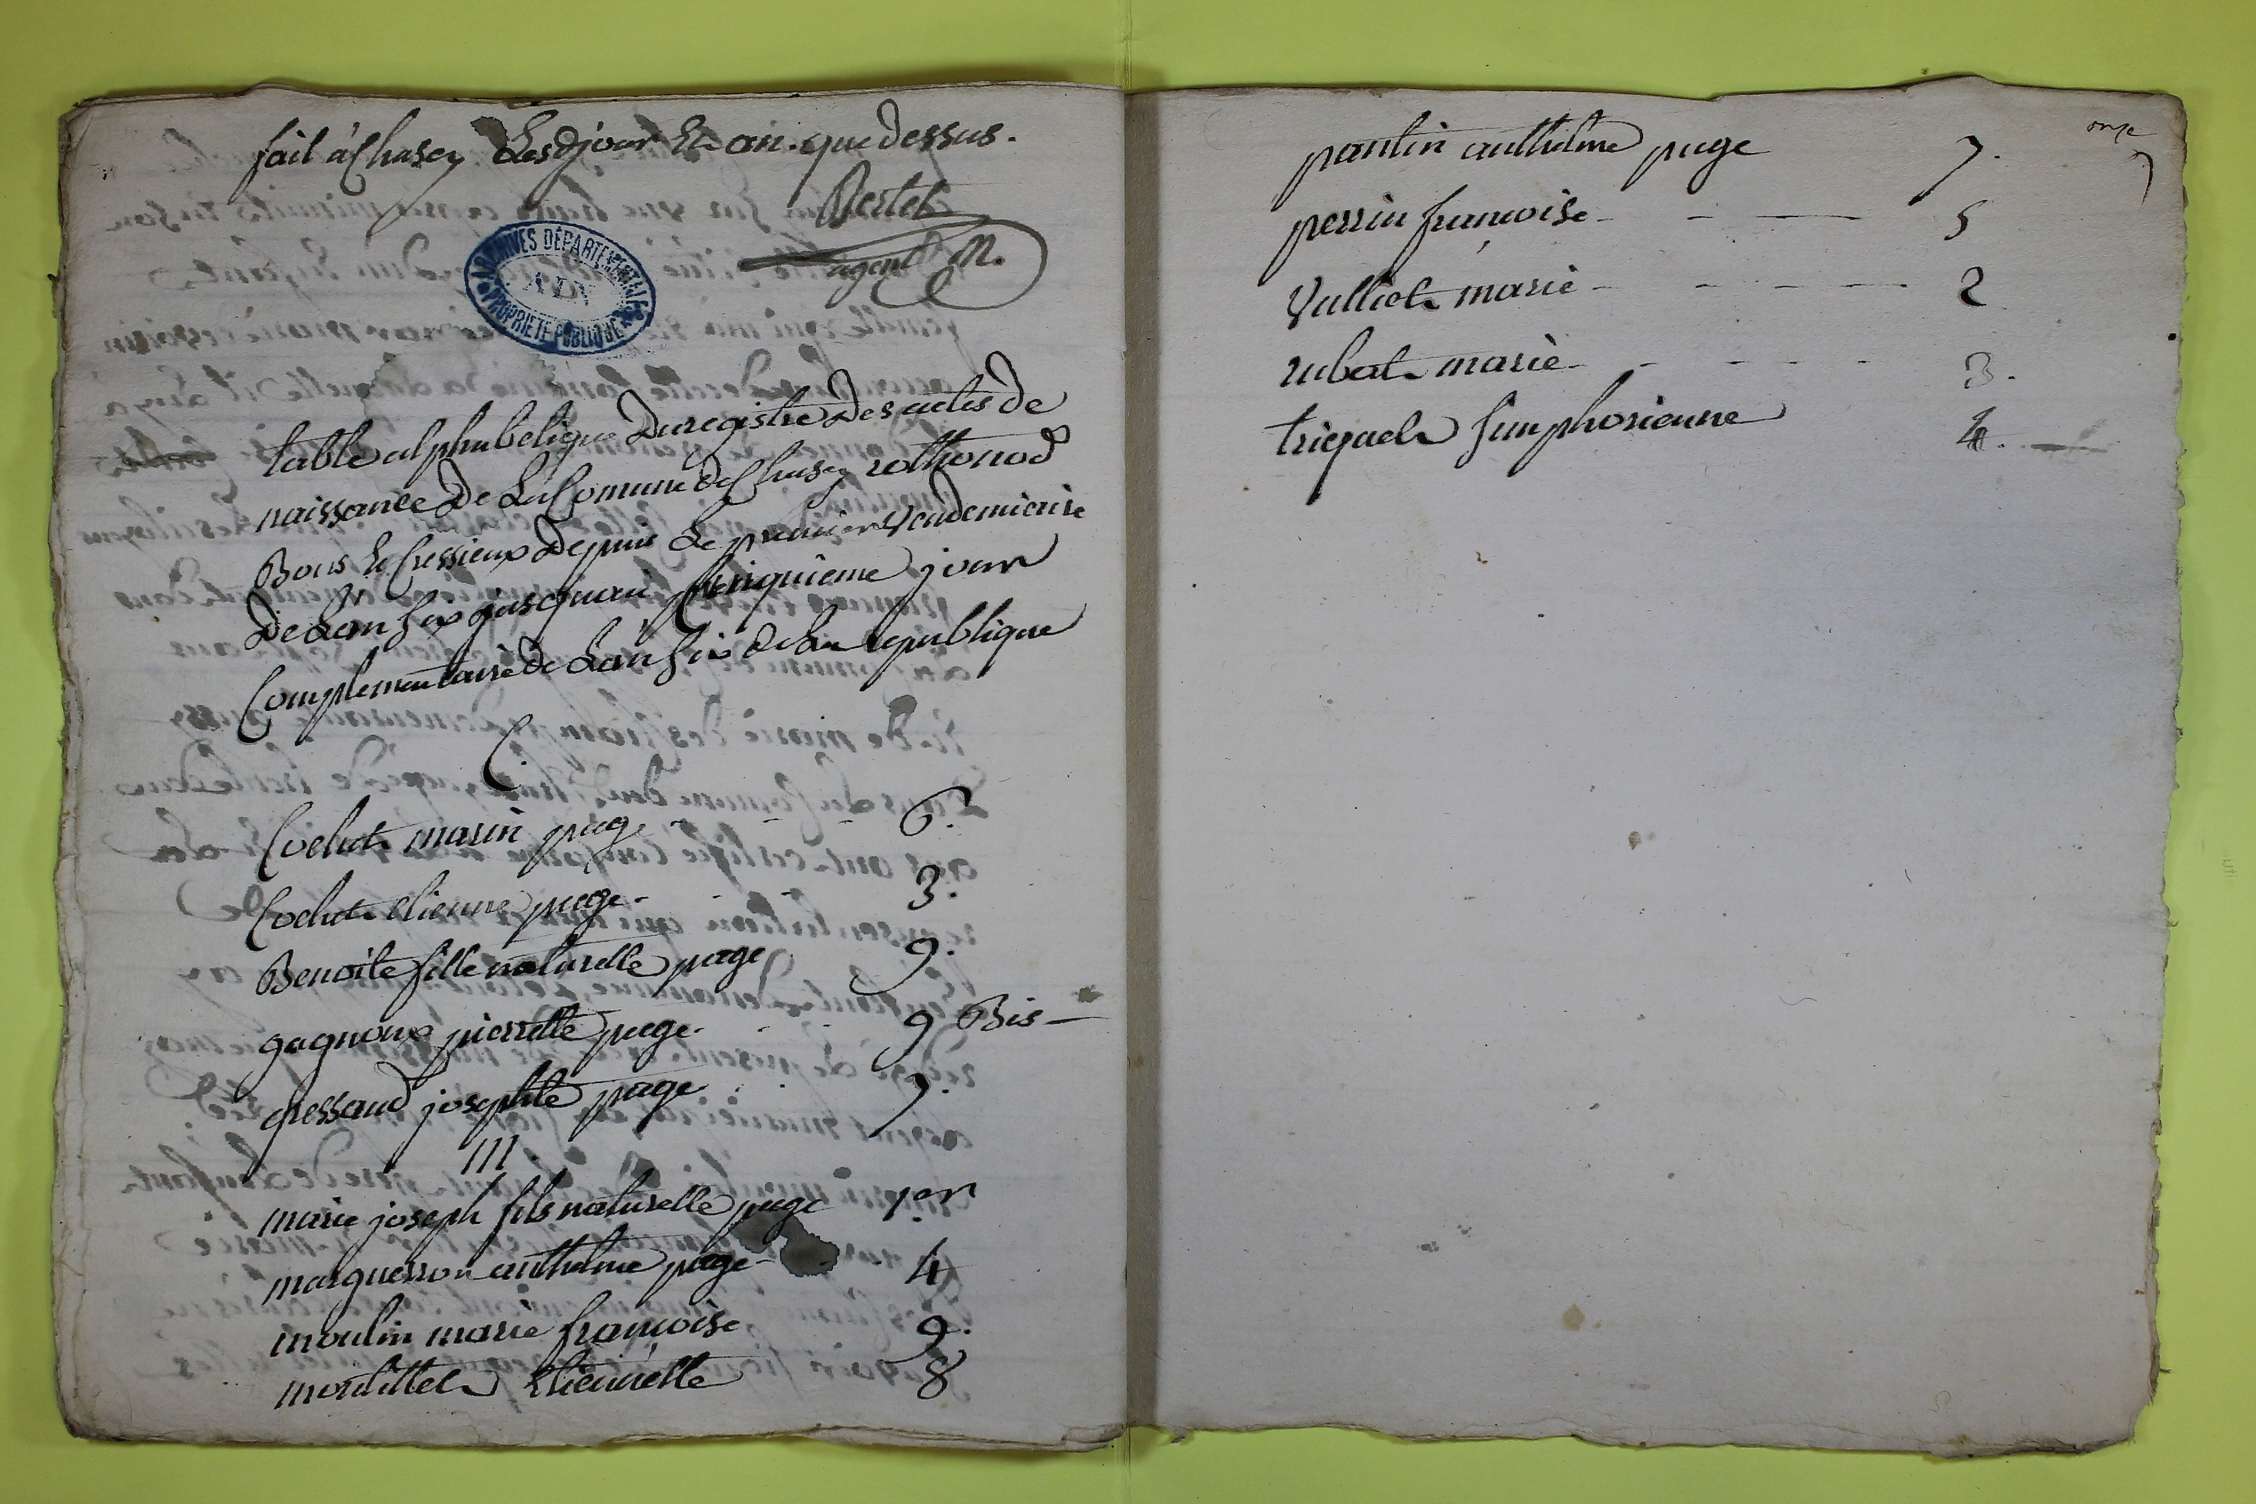 fait à Chasey Lesd jour et an que dessus.
Bertet
agent M.
ARCHIVES DÉPARTEMENTALES
AIN
PROPRIÉTÉ PUBLIQUE
table alphabetique Du registre Des actes de
naissance De La Comune de Chasey rothonod
Bons et Cressieux Depuis Le premier vendemiaire
De Lan six jusquau Cinquieme jour
Complementaire de Lan six de la republique
C.
Cochet marin page 6.
Cochet etienne page 3.
Benoite fille naturelle page 9.
gagnoux pierrette page 9 Bis
gressaud josephte page 7.
M.
marie joseph fils naturelle page 1.er
marguerron anthelme page 4
moulin marie francoise 9.
mortillet Etiennette 8
onze
pantin anthelme page 7.
perrin françoise 5
Valliet marie 2
rubat marie 3.
triquet simphorienne 4.